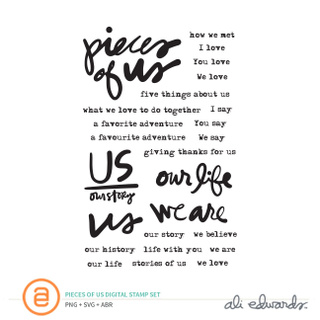 pieces of us
how we met
I love
You love
We love
five things about us
what we love to do together
I say
a favorite adventure
You say
a favourite adventure
We say
giving thanks for us
US
our story
our life
us
we are
our story
we believe
our history
life with you
we are
our life
stories of us
we love
a
PIECES OF US DIGITAL STAMP SET
PNG + SVG + ABR
ali edwards